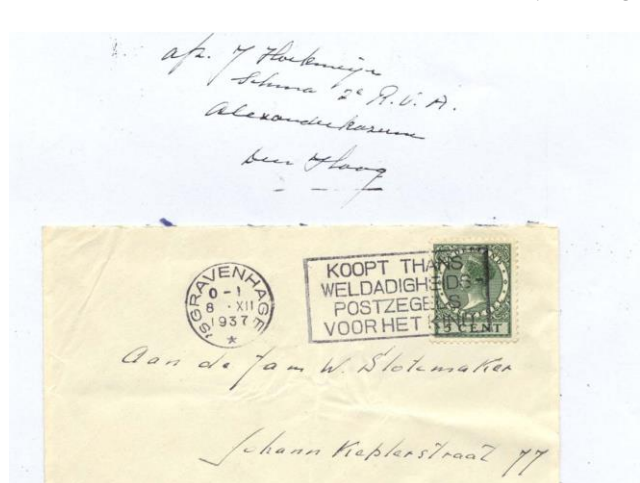 afz. J Hoekmeijer
Schma 2e R.V.A.
Alexanderkazerne
Den Haag
'SGRAVENHAGE
0-1
8 ·XII
1937
*
KOOPT THANS
WELDADIGHEIDS-
POSTZEGELS
VOOR HET
CENT
Aan de fam W. Slotemaker
Johann Keplerstraat 77